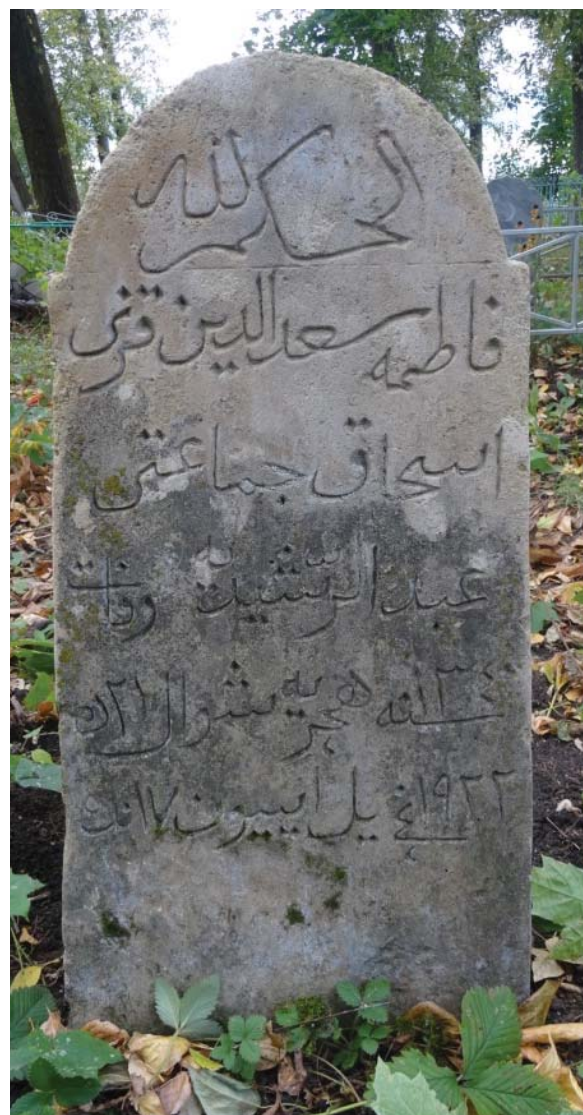 الحكم لله
فاطمه سعد الدين قزى
اسحاق جماعتى
عبد الرشيديه وفات
١٣٤٠ سنه هجريه شوال ٢١ ده
١٩٢٢ نچى يل اييون ١٧ نده